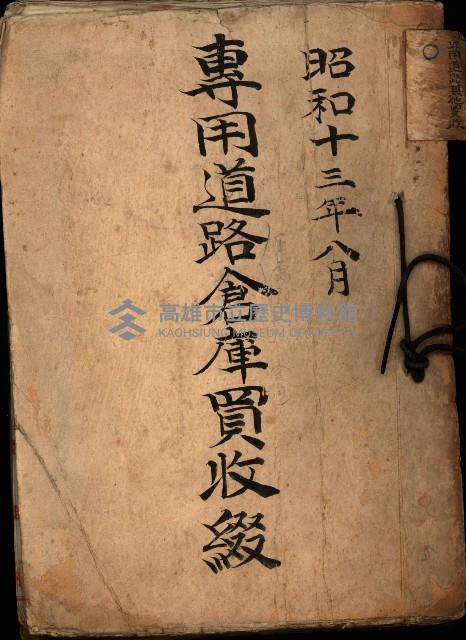 昭和十三年八月
專用道路倉庫買收綴
高雄市立歷史博物館
KAOHSIUNG MUSEUM OF HISTORY